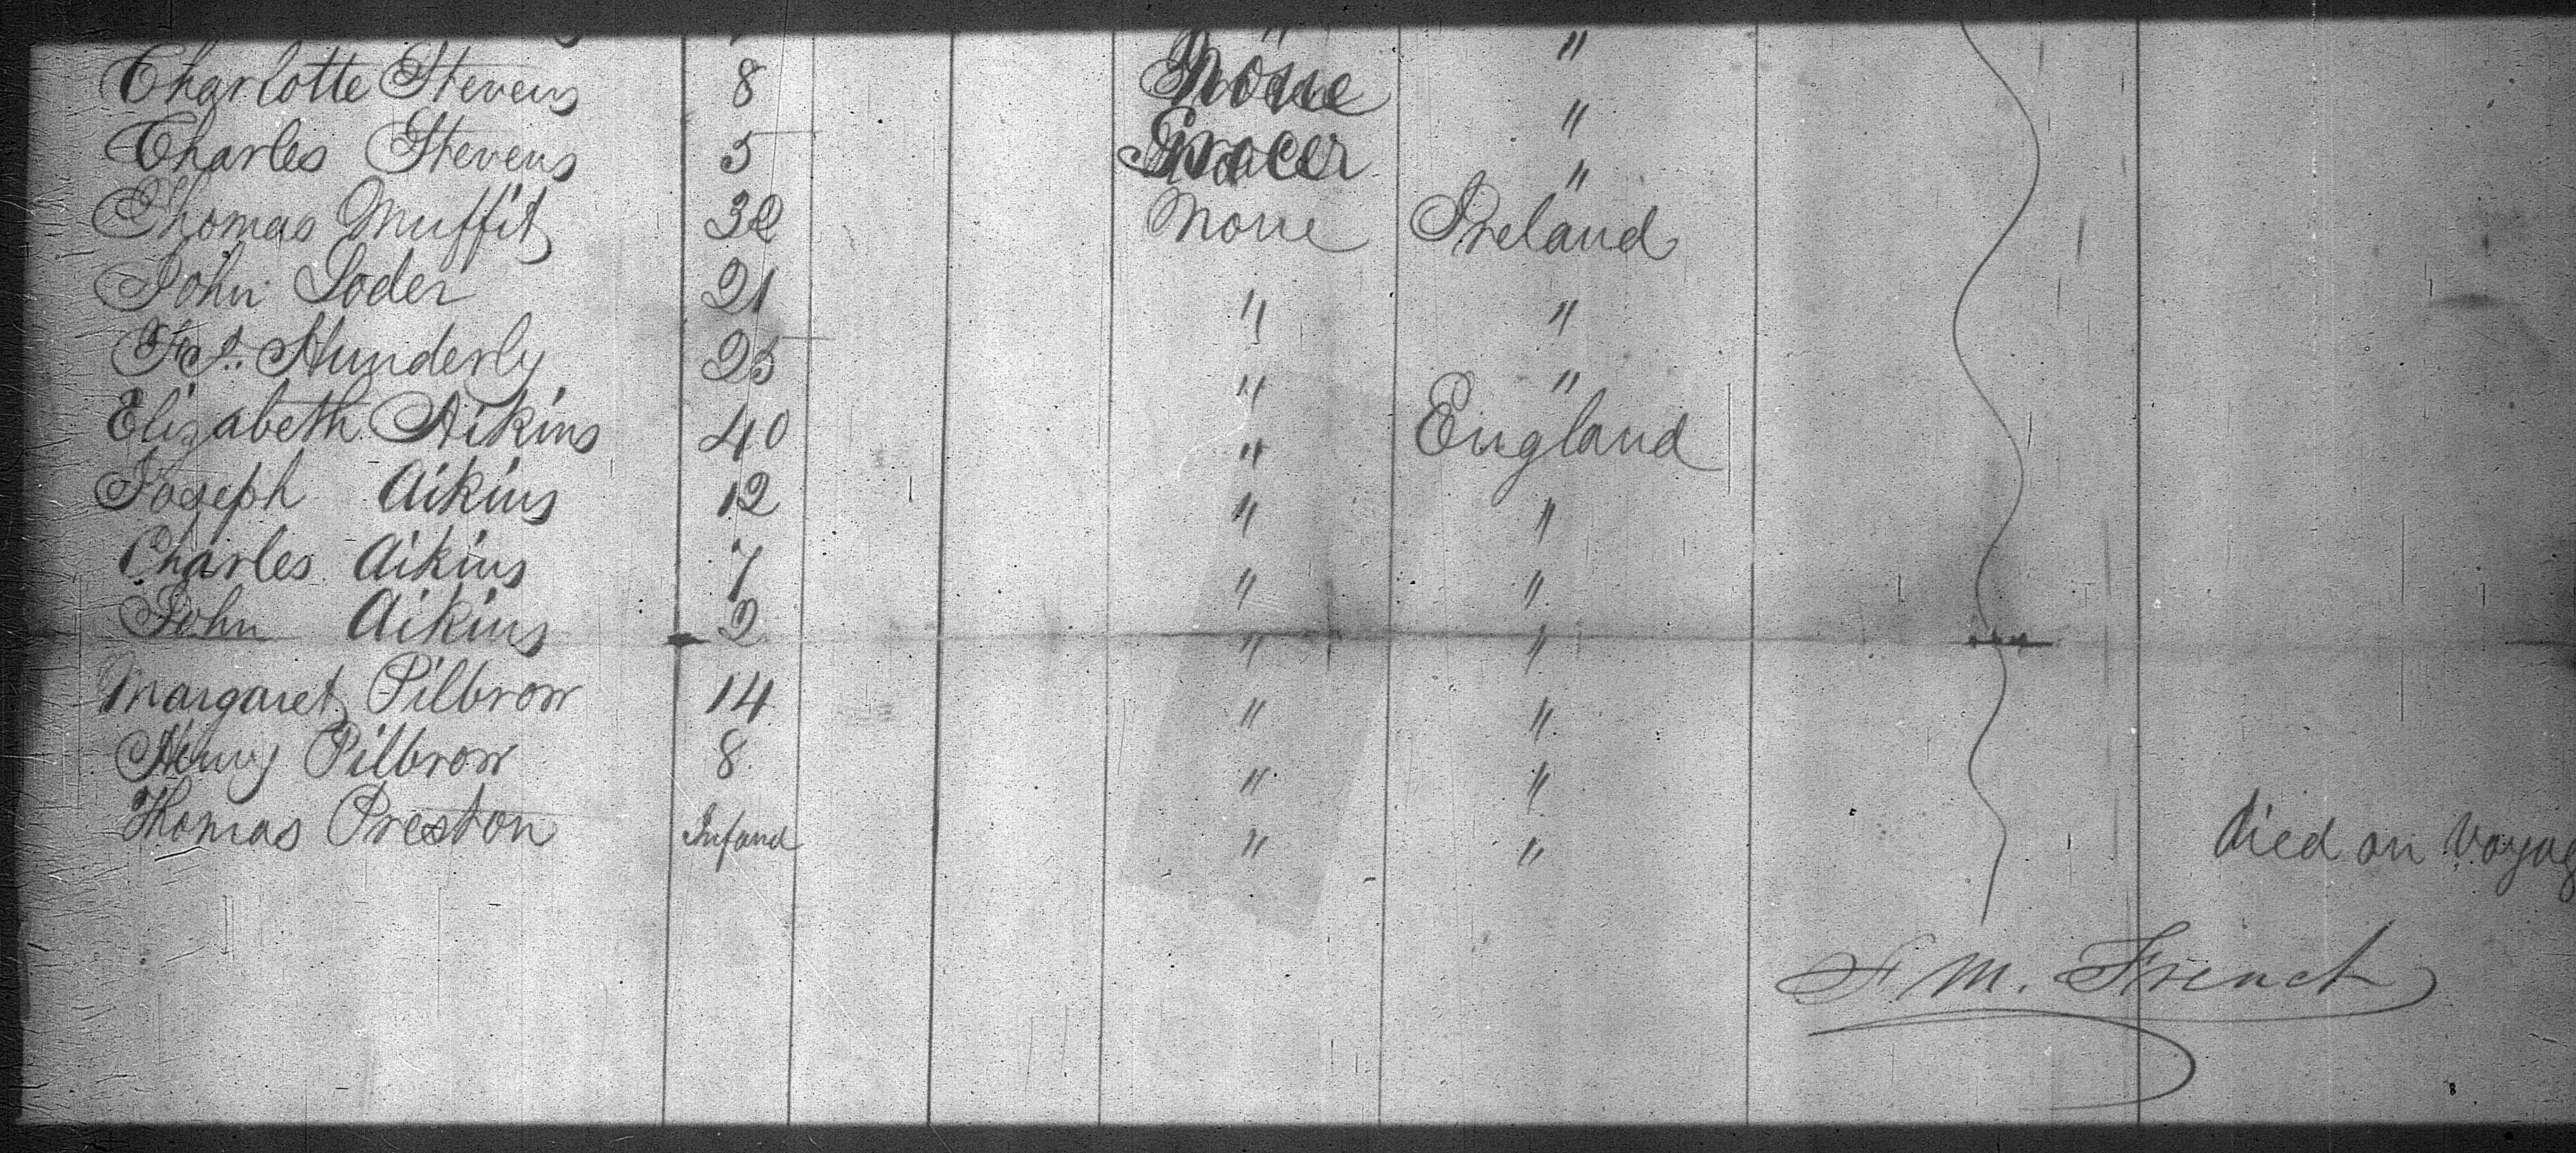 "
Charlotte Stevens 8 None "
Charles Stevens 5 Grocer "
Thomas Muffit 32 None Ireland
John Soder 21 " "
Hunderly 25 " "
Elizabeth Aikins 40 " England
Joseph Aikins 12 " "
Charles Aikins 7 " "
John Aikins 2 " "
Margaret Pilbrow 14 " "
Henry Pilbrow 8 " "
Thomas Preston Infand " " died on Voyag
F. M. French